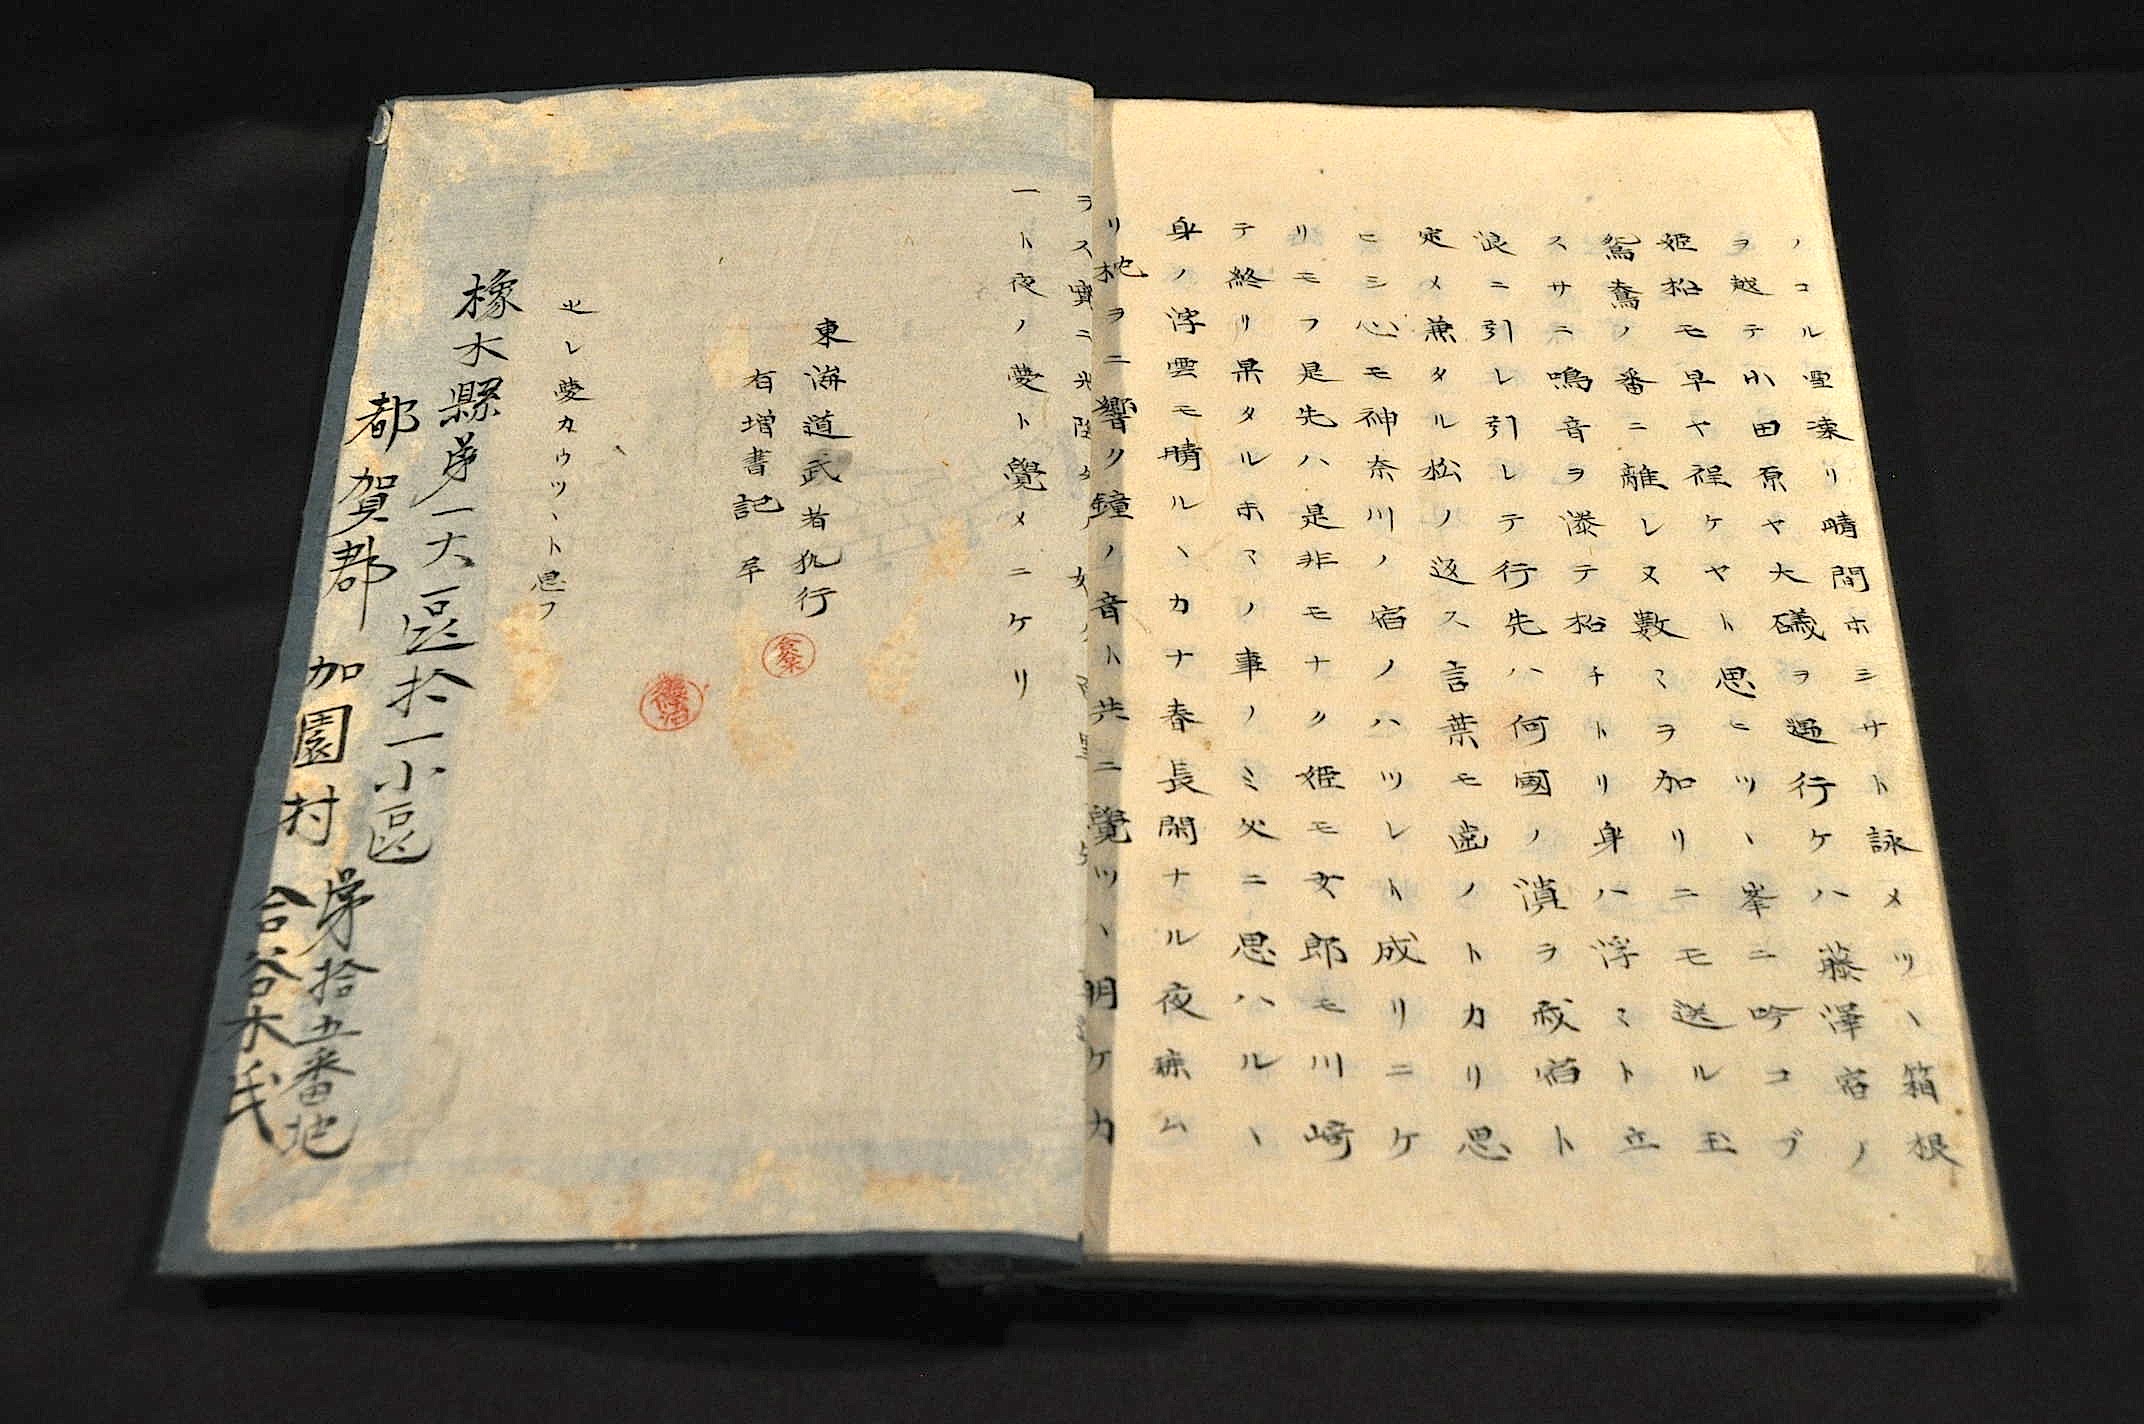 ノコル雪凍リ晴間ホミサト詠メツヽ箱根
ヲ越テ小田原ヤ大磯ヲ過行ケハ藤澤宿ノ
姫松モ早ヤ程ケヤト思ヒツヽ峯ニ吟コブ
鴛鴦ノ番ニ離レヌ數ミヲ加リニモ送ル玉
スサニ鳴音ヲ添テ松チトリ身ハ浮ミト立
浪ニ引レ引レテ行先ハ何國ノ濱ヲ我宿ト
定メ兼タル松ノ返ス言葉モ歯ノトカリ思
ヒシ心モ神奈川ノ宿ノハツレト成リニケ
リモフ是先ハ是非モナク姫モ女郎モ川崎
テ終リ果タルホマノ事ノミ父ニ思ハルヽ
身ノ浮雲モ晴ルヽカナ春長閑ナル夜疎ム
リ枕ヲニ響ク鐘ノ音ト共ニ覺ツヽ明ケカ
一ト夜ノ夢ト覺メニケリ
東海道武者執行
有増書記
是レ夢カウツヽト思フ
橡木縣第一大區拾一小區
都賀郡加園村第拾五番地
合谷木氏